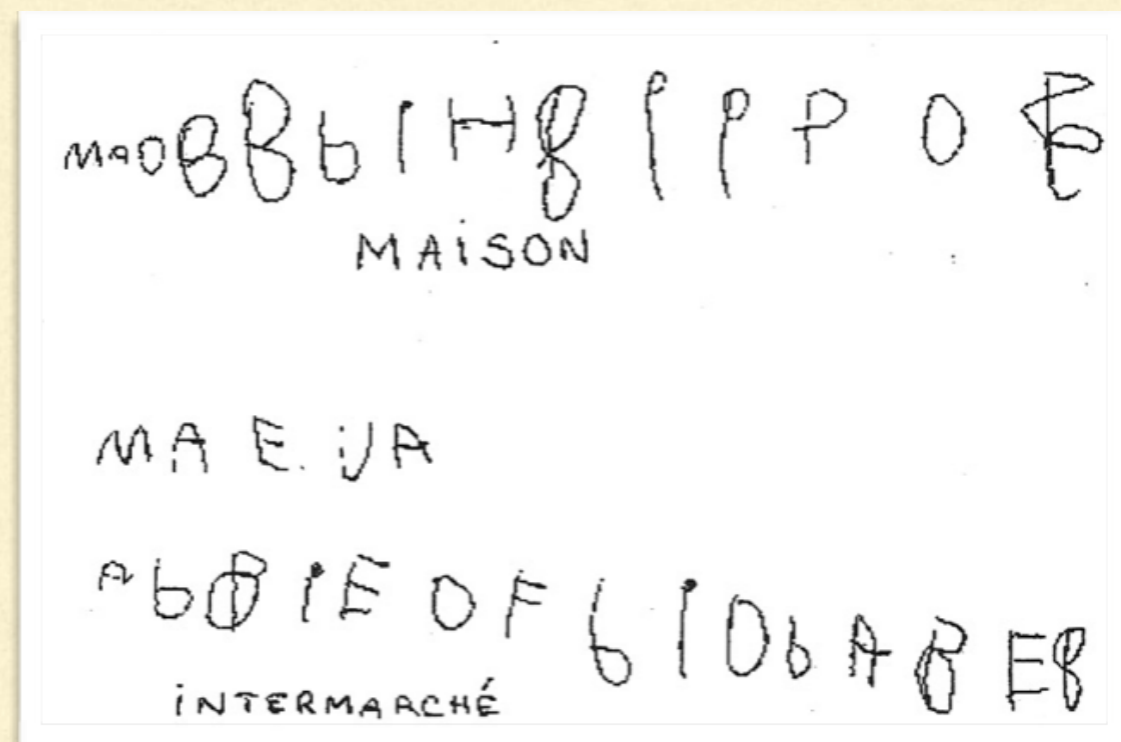 MAOBBbiHBPPPOE
MAiSON
MA E. iJA
AbBiEOFbiObABEB
iNTERMARCHÉ